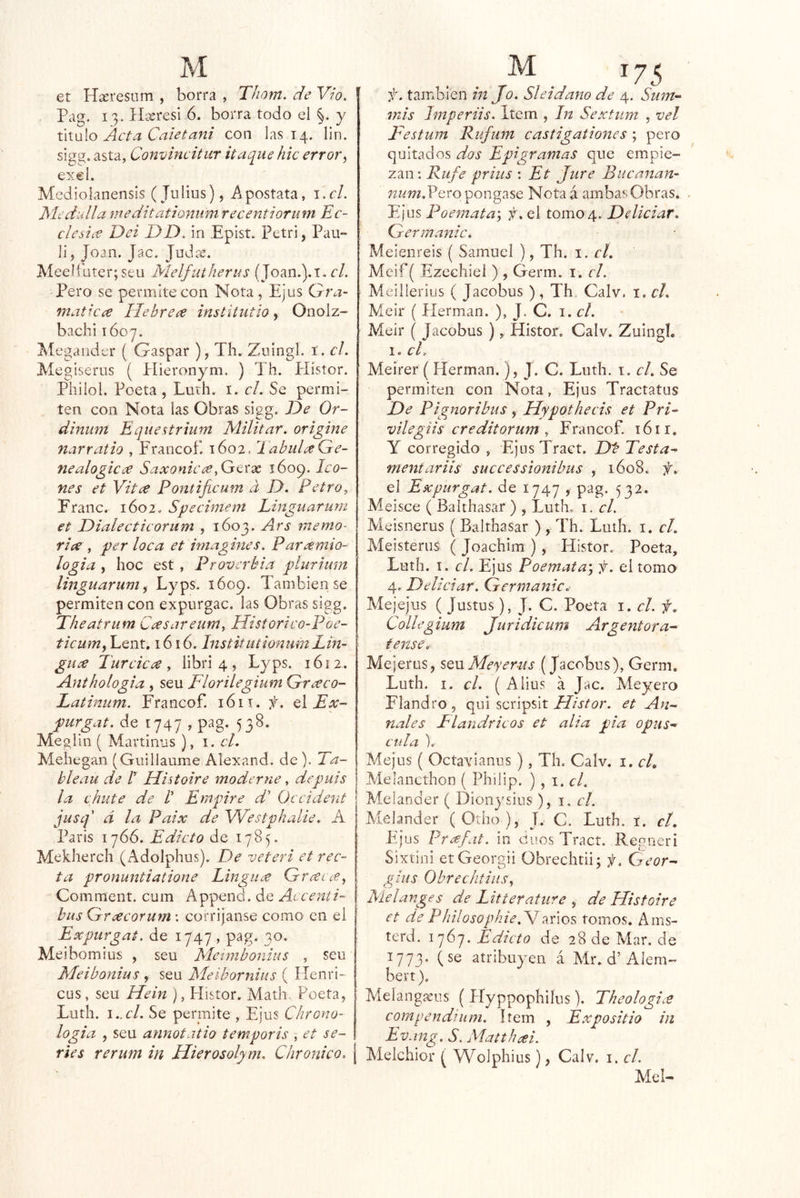 M
et Hæresum , borra , Thom. de Vio.
Pag. 13. Hæresi 6. borra todo el §. y
titulo Acta Caietani con las 14. lin.
sigg. asta, Convincitur itaque hic error,
exel.
Mediolanensis ( Julius ), Apostata, 1. cl.
Medulla meditationum recentiorum Ec-
clesiæ Dei DD. in Epist. Petri, Pau-
li, Joan. Jac. Judæ.
Meelfuter; seu Melfutherus (Joan.). 1. cl.
Pero se permite con Nota, Ejus Gra-
maticæ Hebreæ institutio, Onolz-
bachi 1607.
Megander ( Gaspar ), Th. Zuingl. 1. cl.
Megiserus ( Hieronym. ) Th. Histor.
Philol. Poeta, Luth. 1. cl. Se permi-
ten con Nota las Obras sigg. De Or-
dinum Equestrium Militar. origine
narratio, Francof. 1602. Tabulæ Ge-
nealogicæ Saxonicæ, Geræ 1609. Ico-
nes et Vitæ Pontificum á D. Petro,
Franc. 1602. Specimem Linguarum
et Dialecticorum , 1603. Ars memo-
riæ , per loca et imagines. Paræmio-
logia , hoc est , Proverbia plurium
linguarum, Lyps. 1609. Tambien se
permiten con expurgac. las Obras sigg.
Theatrum Cæsareum, Historico-Poe-
ticum, Lent. 1616. Institutionum Lin-
guæ Turcicæ, libri 4, Lyps. 1612.
Anthologia, seu Florilegium Græco-
Latinum. Francof. 1611. ℣. el Ex-
purgat. de 1747, pag. 538.
Meglin ( Martinus ), 1. cl.
Mehegan (Guillaume Alexand. de ). Ta-
bleau de l' Histoire moderne, depuis
la chute de l' Empire d' Occident
jusq' á la Paix de Westphalie. A
Paris 1766. Edicto de 1785.
Mekherch (Adolphus). De veteri et rec-
ta pronuntiatione Linguæ Græcæ,
Comment. cum Append. de Accenti-
bus Græcorum: corrijanse como en el
Expurgat. de 1747, pag. 30.
Meibomius , seu Meimbonius , seu
Meibonius, seu Meibornius ( Henri-
cus, seu Hein ), Histor. Math. Poeta,
Luth. 1. cl. Se permite, Ejus Chrono-
logia , seu annotatio temporis , et se-
ries rerum in Hierosolym. Chronico.
M 175
℣. tambien in Jo. Sleidano de 4. Sum-
mis Imperiis. Item , In Sextum , vel
Festum Rufum castigationes ; pero
quitados dos Epigramas que empie-
zan: Rufe prius : Et Jure Bucanan-
num. Pero pongase Nota á ambas Obras.
Ejus Poemata; ℣. el tomo 4. Deliciar.
Germanic.
Meienreis ( Samuel ), Th. 1. cl.
Meif ( Ezechiel ), Germ. 1. cl.
Meillerius ( Jacobus ), Th. Calv. 1. cl.
Meir ( Herman. ), J. C. 1. cl.
Meir ( Jacobus ), Histor. Calv. Zuingl.
1. cl.
Meirer ( Herman. ), J. C. Luth. 1. cl. Se
permiten con Nota, Ejus Tractatus
De Pignoribus, Hypothecis et Pri-
vilegiis creditorum, Francof. 1611.
Y corregido , Ejus Tract. De Testa-
mentariis successionibus , 1608. ℣.
el Expurgat. de 1747, pag. 532.
Meisce ( Balthasar ), Luth. 1. cl.
Meisnerus ( Balthasar ), Th. Luth. 1. cl.
Meisterus ( Joachim ) , Histor. Poeta,
Luth. 1. cl. Ejus Poemata; ℣. el tomo
4. Deliciar. Germanic.
Mejejus ( Justus ), J. C. Poeta 1. cl. ℣.
Collegium Juridicum Argentora-
tense.
Mejerus, seu Meyerus (Jacobus), Germ.
Luth. 1. cl. ( Alius à Jac. Meyero
Flandro, qui scripsit Histor. et An-
nales Flandricos et alia pia opus-
cula ).
Mejus ( Octavianus ), Th. Calv. 1. cl.
Melancthon ( Philip. ), 1. cl.
Melander ( Dionysius ), 1. cl.
Melander ( Otho ), J. C. Luth. 1. cl.
Ejus Præfat. in duos Tract. Regneri
Sixtini et Georgii Obrechtii; ℣. Geor-
gius Obrechtius.
Melanges de Litterature , de Histoire
et de Philosophie. Varios tomos. Ams-
terd. 1767. Edicto de 28 de Mar. de
1773. ( se atribuyen á Mr. d' Alem-
bert ).
Melangæus ( Hyppophilus ). Theologiæ
compendium. Item , Expositio in
Evang. S. Matthæi.
Melchior ( Wolphius ), Calv. 1. cl.
Mel-